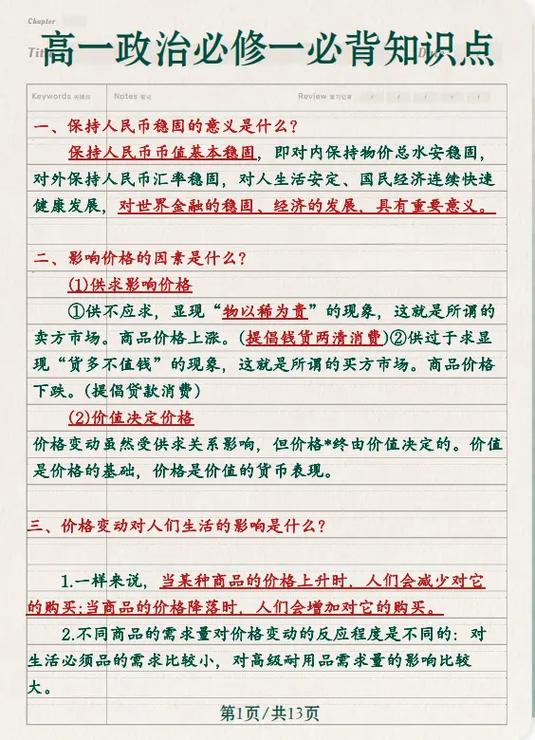 Chapter
高一政治必修一必背知识点
Keywords 关键词
Notes 笔记
Review 复习记录
一、保持人民币稳固的意义是什么？
保持人民币币值基本稳固，即对内保持物价总水安稳固，
对外保持人民币汇率稳固，对人生活安定、国民经济连续快速
健康发展，对世界金融的稳固、经济的发展，具有重要意义。
二、影响价格的因素是什么？
(1)供求影响价格
①供不应求，显现“物以稀为贵”的现象，这就是所谓的
卖方市场。商品价格上涨。(提倡钱货两清消费)②供过于求显
现“货多不值钱”的现象，这就是所谓的买方市场。商品价格
下跌。(提倡贷款消费)
(2)价值决定价格
价格变动虽然受供求关系影响，但价格*终由价值决定的。价值
是价格的基础，价格是价值的货币表现。
三、价格变动对人们生活的影响是什么？
1.一样来说，当某种商品的价格上升时，人们会减少对它
的购买;当商品的价格降落时，人们会增加对它的购买。
2.不同商品的需求量对价格变动的反应程度是不同的：对
生活必须品的需求比较小，对高级耐用品需求量的影响比较
大。
第1页/共13页